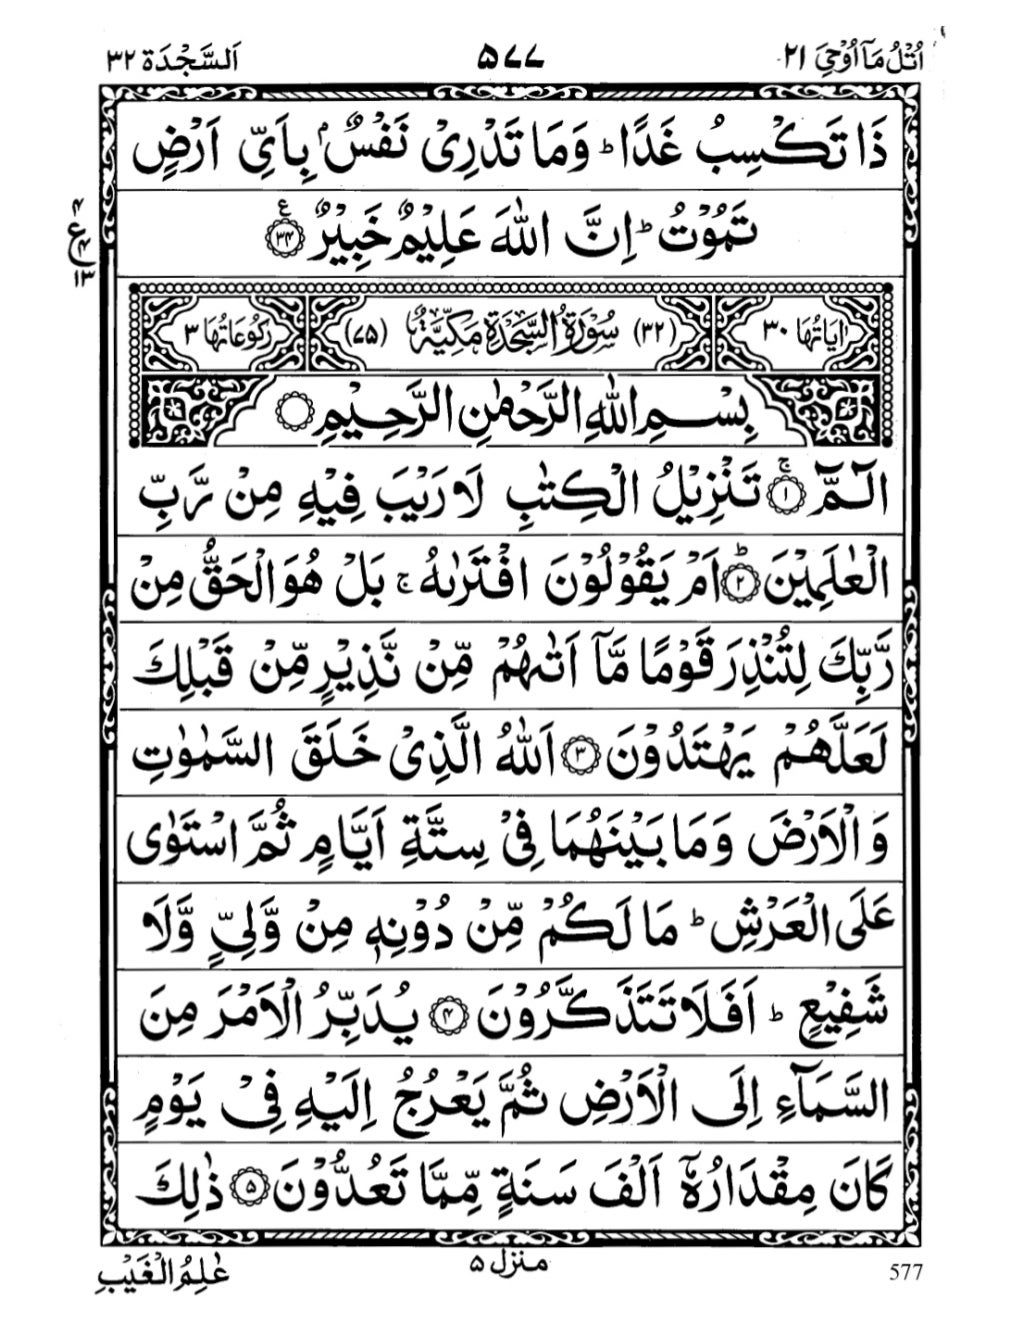 اُتْلُ مَآ اُوْحِيَ ٢١
٥٧٧
اَلسَّجْدَة ٣٢
ذَا تَكْسِبُ غَدًا ؕ وَمَا تَدْرِىْ نَفْسٌۢ بِاَىِّ اَرْضٍ
تَمُوْتُ ؕ اِنَّ اللّٰهَ عَلِيْمٌ خَبِيْرٌ ۝٣٤ ع
٤
ع
٤
١٣
اٰيَاتُهَا ٣٠
(٣٢) سُوْرَةُ السَّجْدَةِ مَكِّيَّةٌ (٧٥)
رُكُوْعَاتُهَا ٣
بِسْمِ اللّٰهِ الرَّحْمٰنِ الرَّحِيْمِ ۝
الٓمّٓ ۝١ۚ تَنْزِيْلُ الْكِتٰبِ لَا رَيْبَ فِيْهِ مِنْ رَّبِّ
الْعٰلَمِيْنَ ۝٢ؕ اَمْ يَقُوْلُوْنَ افْتَرٰىهُ ۚ بَلْ هُوَ الْحَقُّ مِنْ
رَّبِّكَ لِتُنْذِرَ قَوْمًا مَّآ اَتٰىهُمْ مِّنْ نَّذِيْرٍ مِّنْ قَبْلِكَ
لَعَلَّهُمْ يَهْتَدُوْنَ ۝٣ اَللّٰهُ الَّذِىْ خَلَقَ السَّمٰوٰتِ
وَالْاَرْضَ وَمَا بَيْنَهُمَا فِىْ سِتَّةِ اَيَّامٍ ثُمَّ اسْتَوٰى
عَلَى الْعَرْشِ ؕ مَا لَكُمْ مِّنْ دُوْنِهٖ مِنْ وَّلِىٍّ وَّلَا
شَفِيْعٍ ؕ اَفَلَا تَتَذَكَّرُوْنَ ۝٤ يُدَبِّرُ الْاَمْرَ مِنَ
السَّمَآءِ اِلَى الْاَرْضِ ثُمَّ يَعْرُجُ اِلَيْهِ فِىْ يَوْمٍ
كَانَ مِقْدَارُهٗٓ اَلْفَ سَنَةٍ مِّمَّا تَعُدُّوْنَ ۝٥ ذٰلِكَ
577
منزل ٥
عٰلِمُ الْغَيْبِ